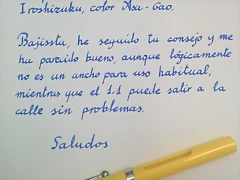 Iroshizuku, color Asa-Gao.
Bajisstu, he seguido tu consejo y me
ha parecido bueno, aunque lógicamente
no es un ancho para uso habitual,
mientras que el 1.1 puede salir a la
calle sin problemas.
Saludos